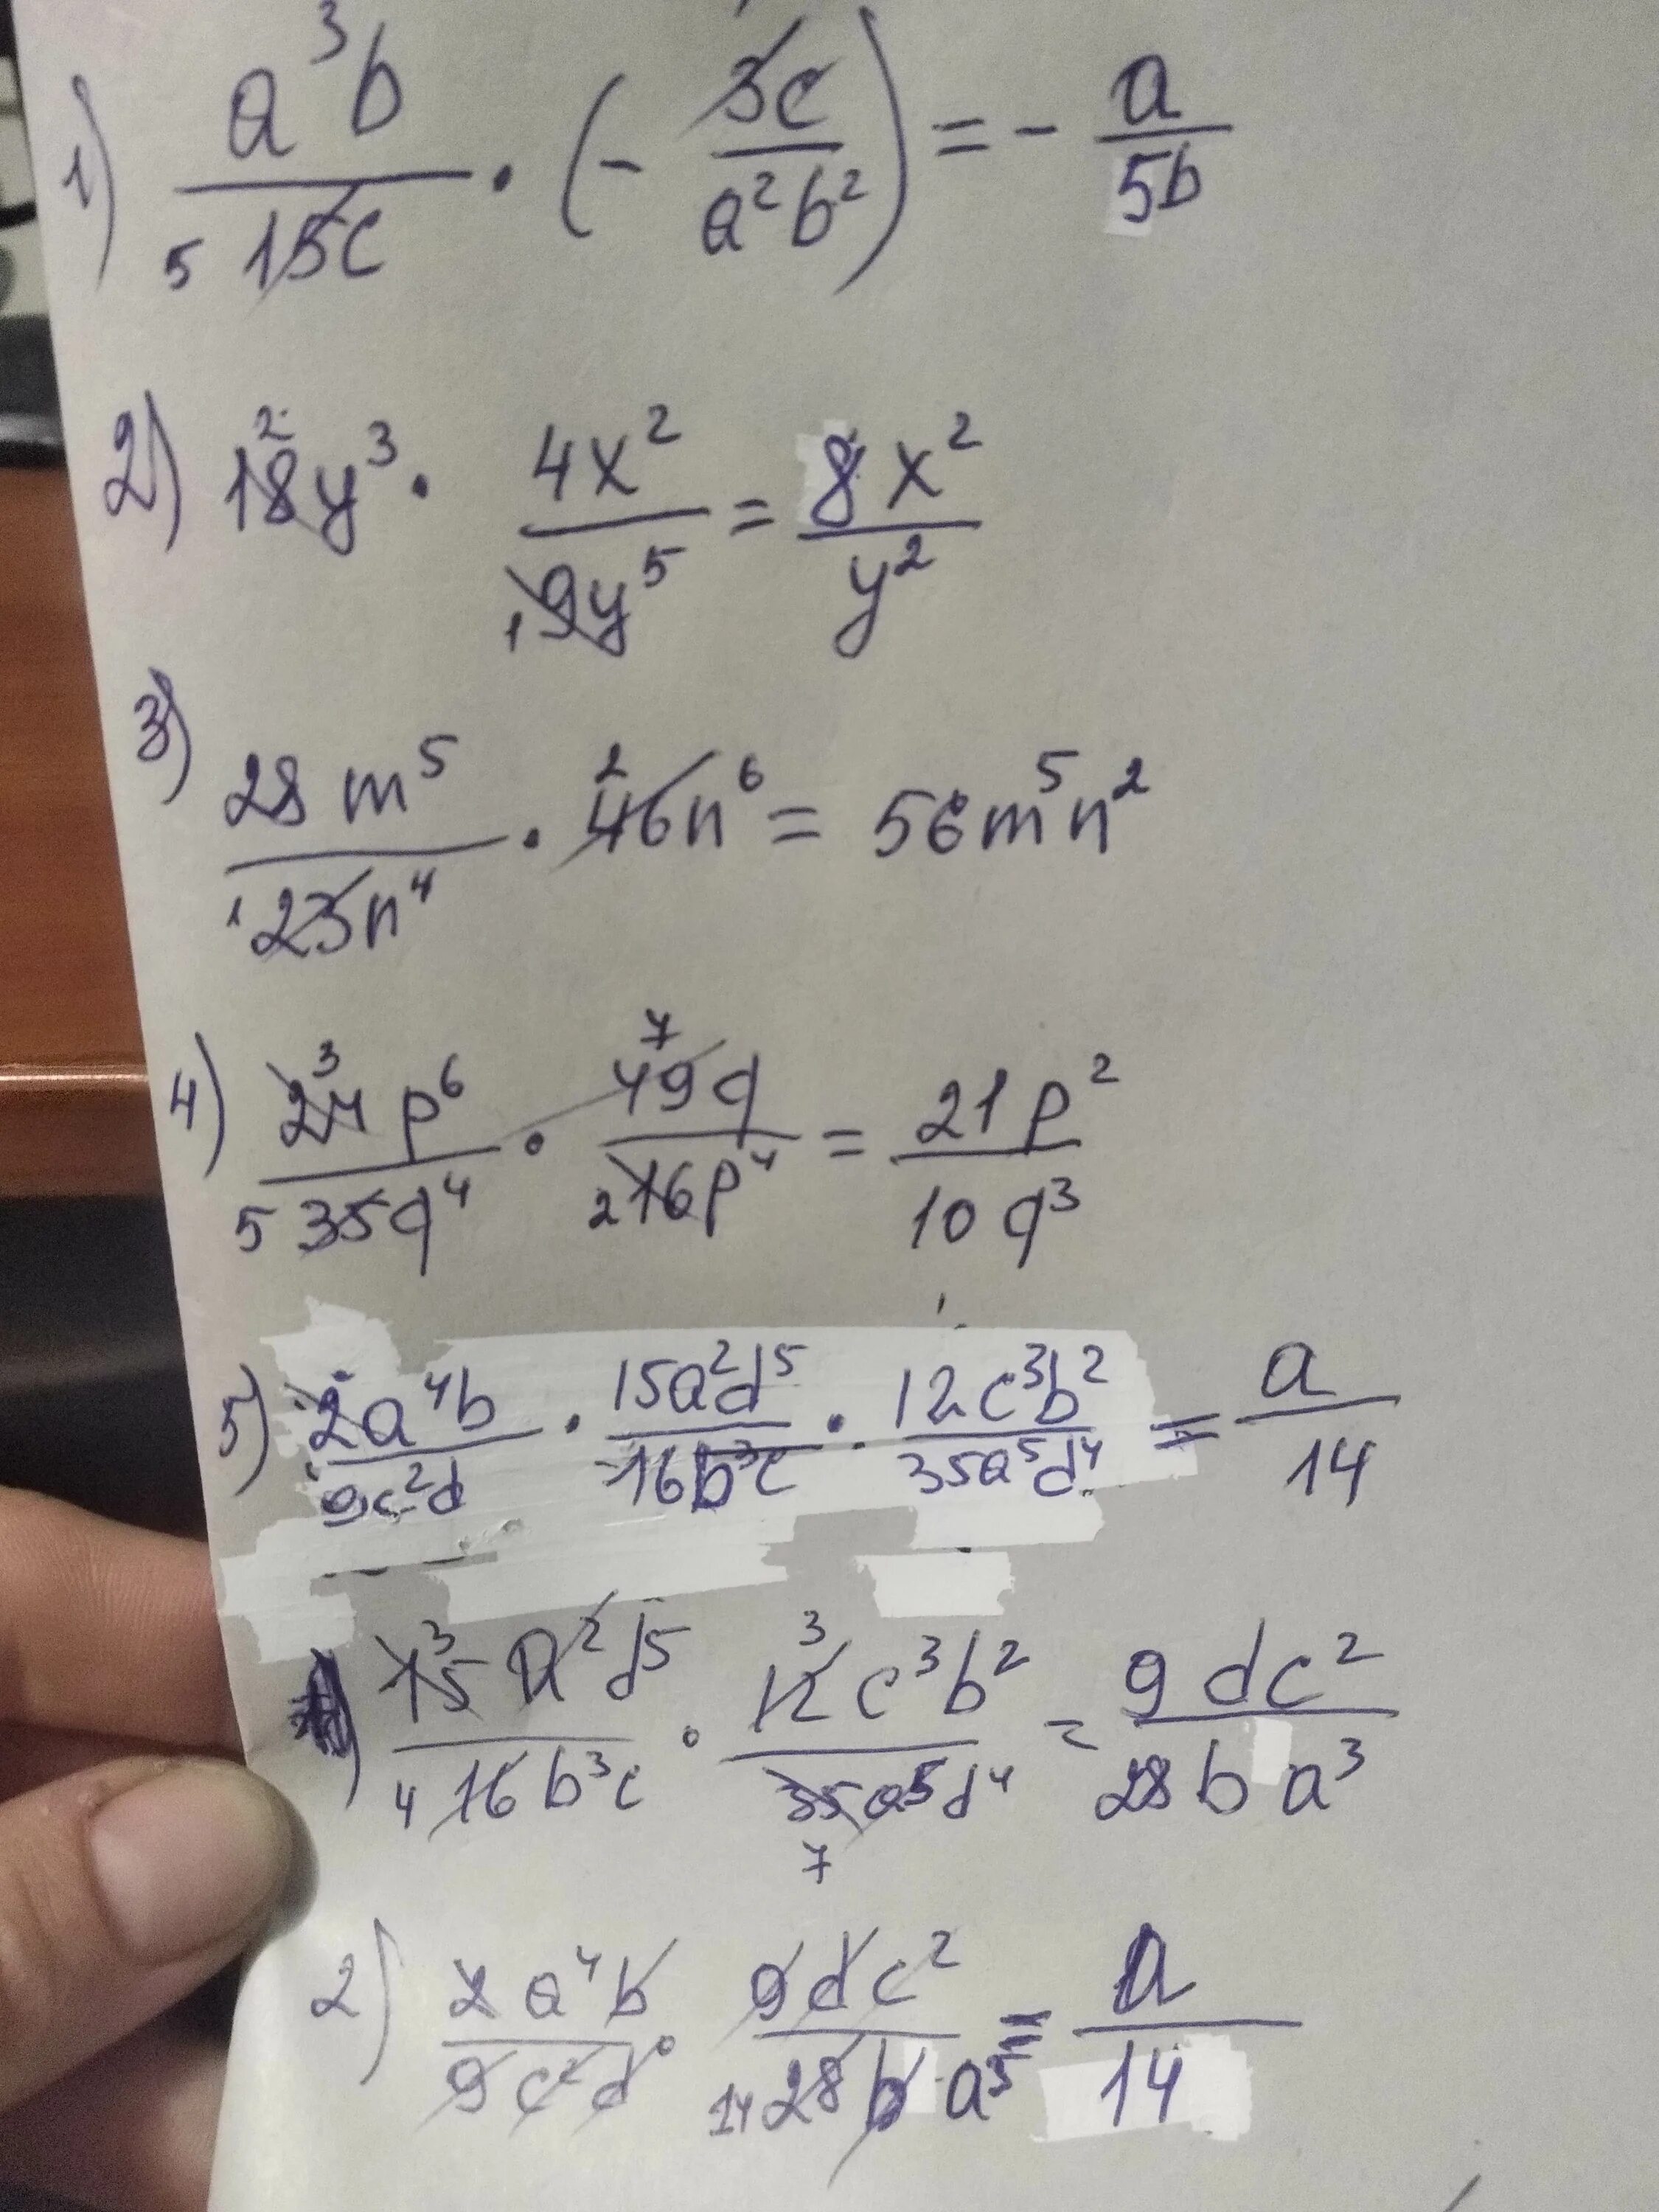 1) a³b / 5 15c · (- 3c / a²b²) = - a / 5b
2) 18² y³ · 4x² / 1 9y⁵ = 8x² / y²
3) 28m⁵ / 1 23n⁴ · ² 46n⁶ = 56m⁵n²
4) 24³ p⁶ / 5 35q⁴ · 49⁷ q / 2 16p⁴ = 21p² / 10q³
5) 2a⁴b / 9c²d · 15a²d⁵ / 16b³c · 12c³b² / 35a⁵d⁴ = a / 14
15³ a²d⁵ / 4 16b³c · 12³ c³b² / 35a⁵d⁴ 7 = 9dc² / 28ba³
2) 2a⁴b / 9c²d · 9dc² / 14 28ba³ = a / 14